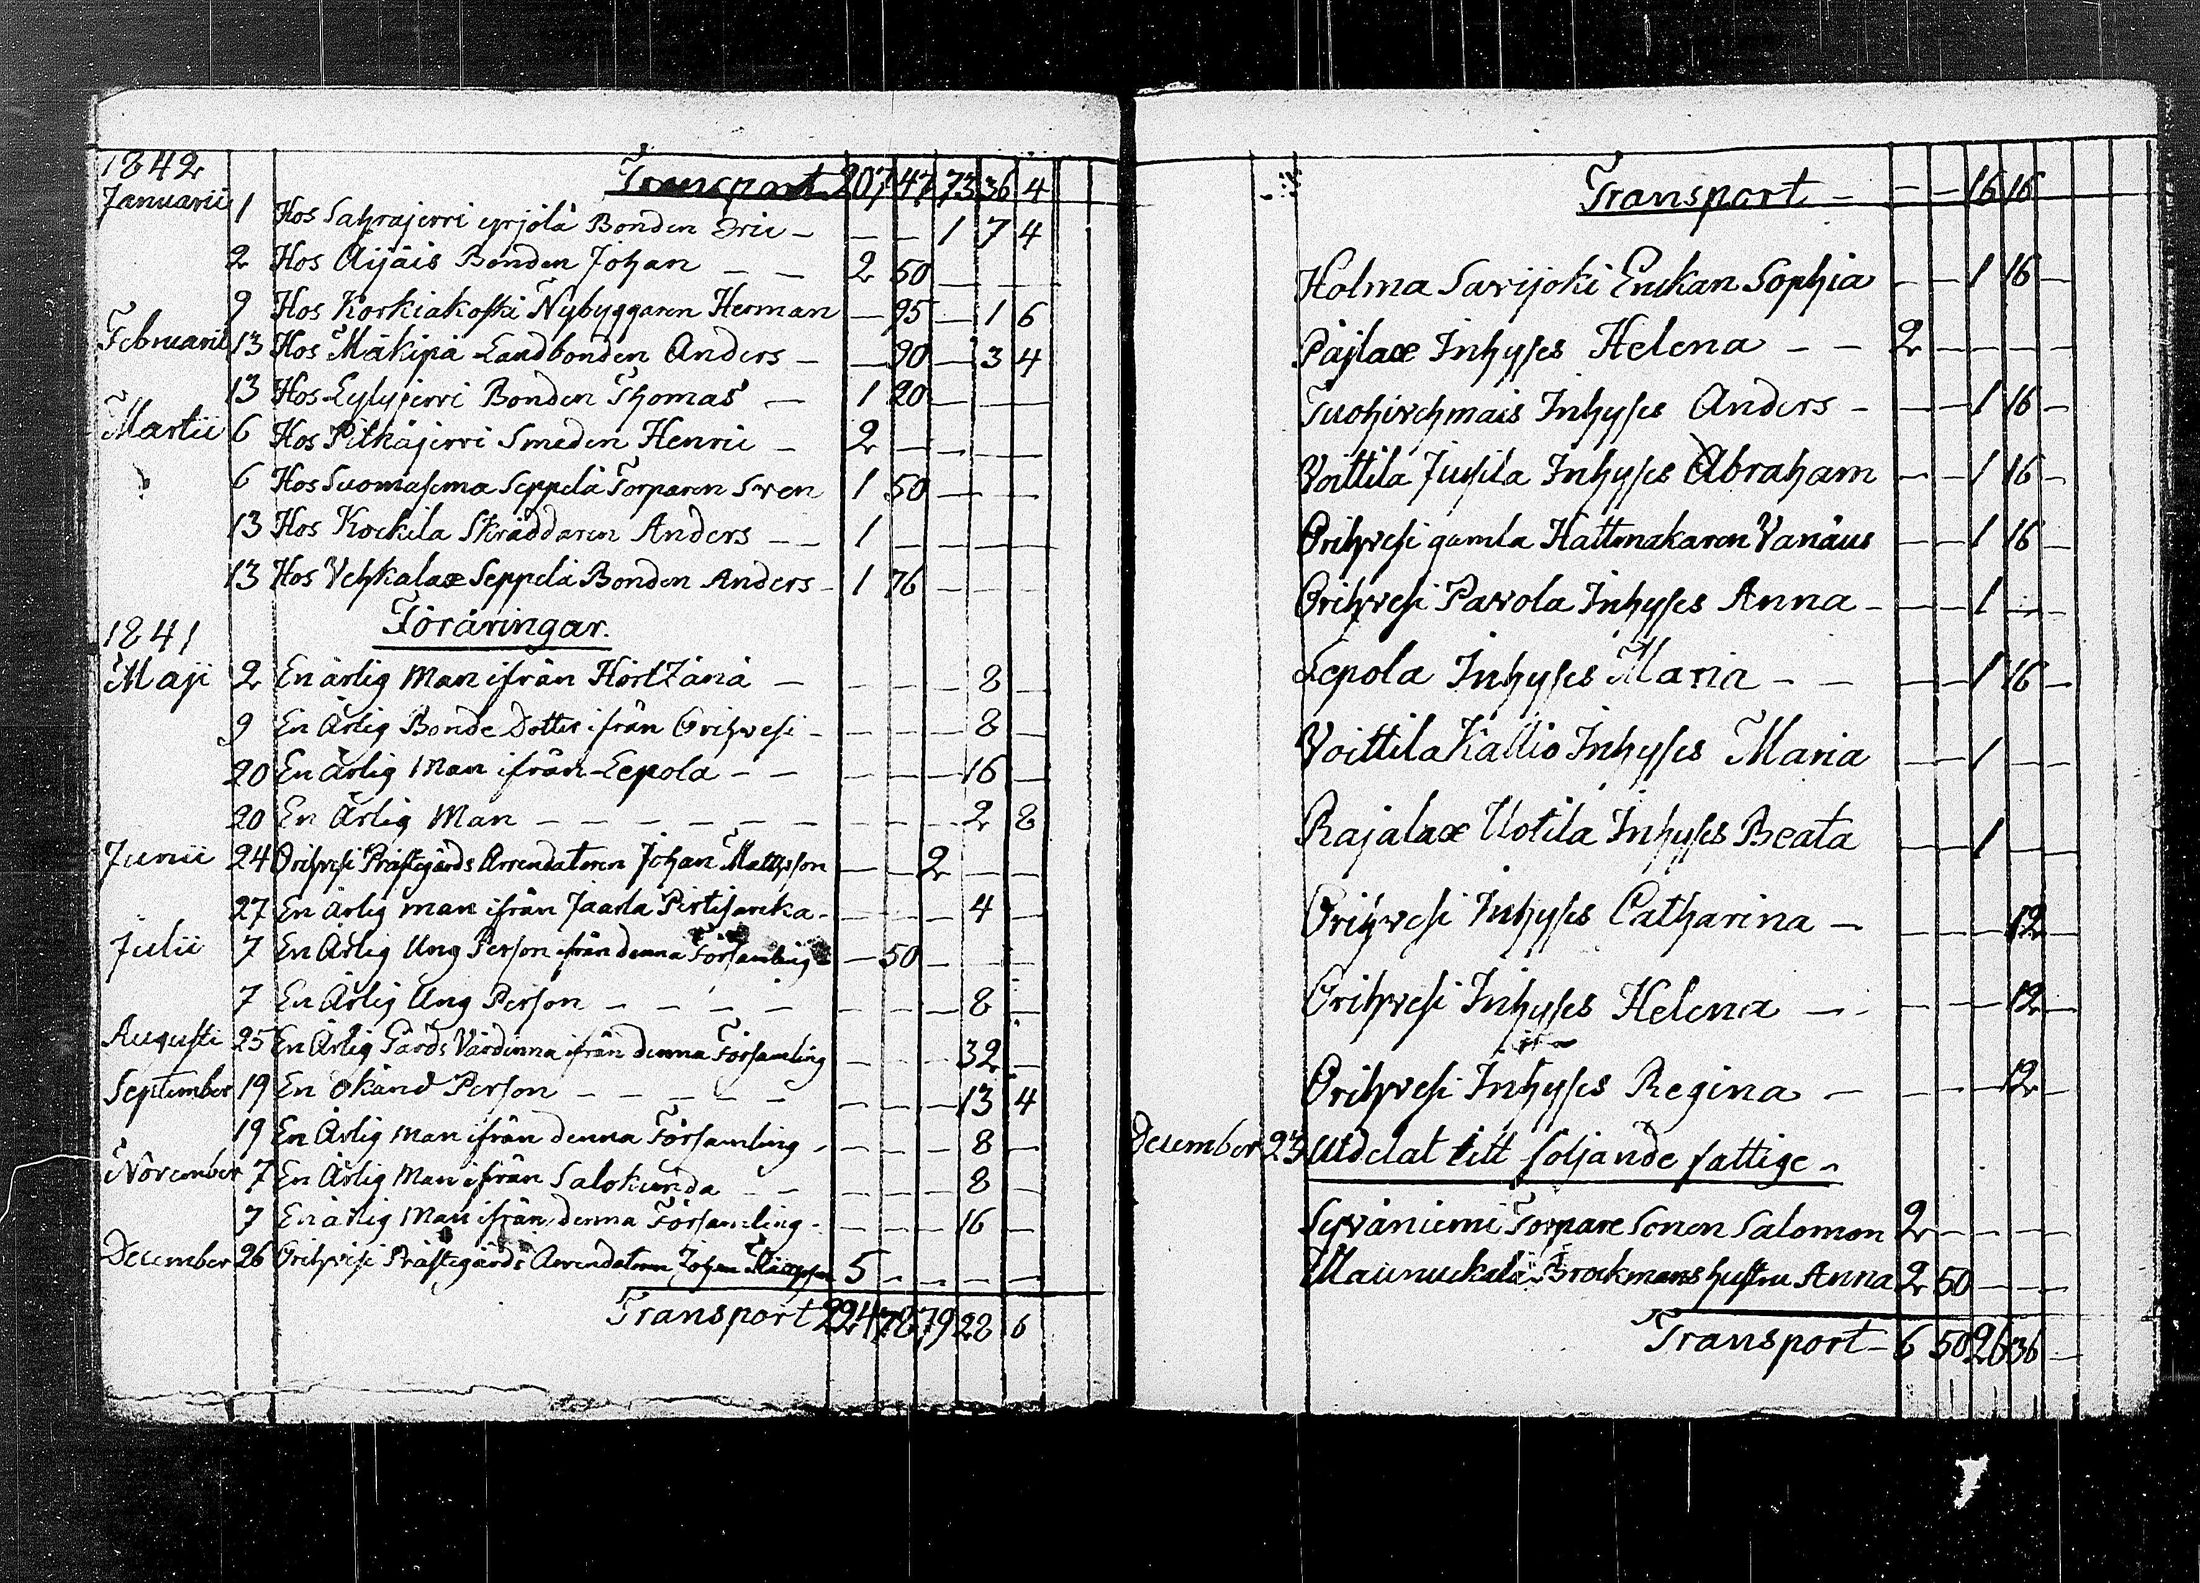 1842
Transport 207 47 73 36 4
Januarii 1 Hos Sahrajerri yrjölä Bonden Eric – – – 1 7 4
2 Hos Äijäis Bonden Johan – – 2 50 – – –
9 Hos Korkiakoski Nybyggaren Herman – 95 – 1 6
Februarii 13 Hos Mäkipä Landbonden Anders – – 90 – 3 4
13 Hos Lylyjerri Bonden Thomas – 1 20 – – –
Martii 6 Hos Pitkäjerri Smeden Henric – 2 – – – –
6 Hos Suomasema Seppelä Torparen Sven 1 50 – – –
13 Hos Kockila Skräddaren Anders – – 1 – – – –
13 Hos Vehkalax Seppelä Bonden Anders – 1 76 – – –
Föräringar.
1841
Maji 2 En ärlig Man ifrån – – – – 8 –
9 En Ärlig Bonde Dotter ifrån Orihvesi – – – – 8 –
20 En Ärlig Man ifrån Lepola – – – – – 16 –
20 En Ärlig Man – – – – – – – – – 2 8
Junii 24 Orihvesi Prästegårds Arrendatoren Johan Mattsson – – 2 – –
27 En ärlig man ifrån Jaarla – – – – 4 –
Julii 7 En Ärlig Ung Person ifrån denna Församling – 50 – – –
7 En Ärlig Ung Person – – – – – – – 8 –
Augusti 25 En Ärlig Gårds Värdinna ifrån denna Församling – – – 32 –
September 19 En Okänd Person – – – – – – – – 13 4
19 En Ärlig Man ifrån denna Församling – – – – 8 –
November 7 En Ärlig Man ifrån Salokunda – – – – – 8 –
7 En ärlig Man ifrån denna Församling – – – – 16 –
December 26 Orihvesi Prästegårds Arrendatoren Johan 5 – – – –
Transport 224 78 79 28 6
Transport – – – 16 16
Holma Savijoki Enckan Sophia – – 1 16 –
Päjlax Inhyses Helena – – 2 – – – –
Inhyses Anders – – – 1 16 –
Voittila Jusila Inhyses Abraham – – 1 16 –
Orihvesi gamla Hattmakaren Vanäus – – 1 16 –
Orihvesi Pavola Inhyses Anna – – – 1 – –
Lepola Inhyses Maria – – – – 1 16 –
Voittila Kallio Inhyses Maria – – 1 – –
Rajalax Uotila Inhyses Beata – – 1 – –
Orihvesi Inhyses Catharina – – – – 12 –
Orihvesi Inhyses Helena – – – – – 12 –
Orihvesi Inhyses Regina – – – – 12 –
December 23 Utdelat till följande fattige –
Syväniemi Torpare Sonen Salomon 2 – – – –
Maunuckala Brockmans hustru Anna 2 50 – – –
Transport – 6 50 26 36 –